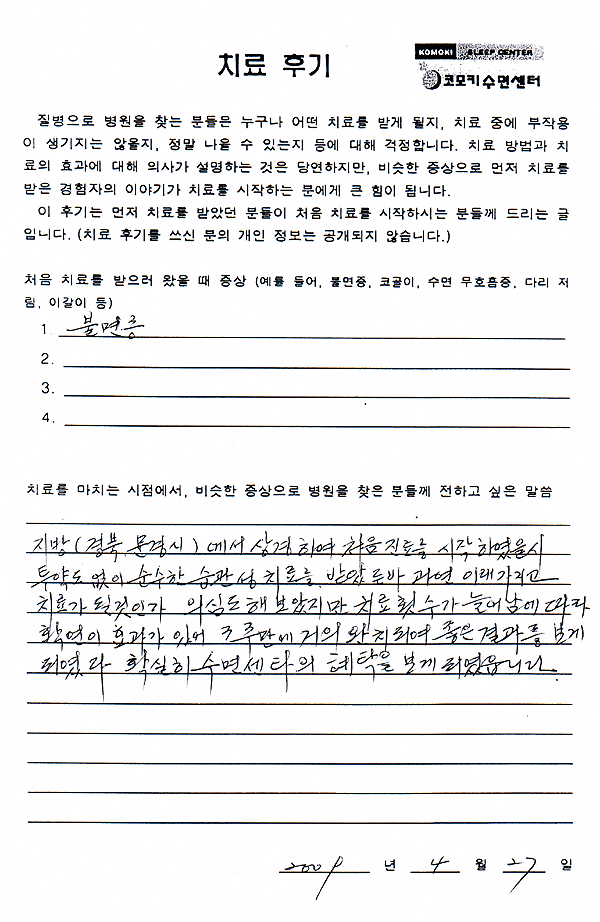 치료 후기
KOMOKI SLEEP CENTER
코모키수면센터
질병으로 병원을 찾는 분들은 누구나 어떤 치료를 받게 될지, 치료 중에 부작용
이 생기지는 않을지, 정말 나을 수 있는지 등에 대해 걱정합니다. 치료 방법과 치
료의 효과에 대해 의사가 설명하는 것은 당연하지만, 비슷한 증상으로 먼저 치료를
받은 경험자의 이야기가 치료를 시작하는 분에게 큰 힘이 됩니다.
이 후기는 먼저 치료를 받았던 분들이 처음 치료를 시작하시는 분들께 드리는 글
입니다. (치료 후기를 쓰신 분의 개인 정보는 공개되지 않습니다.)
처음 치료를 받으러 왔을 때 증상 (예를 들어, 불면증, 코골이, 수면 무호흡증, 다리 저
림, 이갈이 등)
1. 불면증
2.
3.
4.
치료를 마치는 시점에서, 비슷한 증상으로 병원을 찾은 분들께 전하고 싶은 말씀
지방 (경북 문경시) 에서 상경하여 처음 진료를 시작하였을시
투약도 없이 순수한 습관성 치료를 받았는바 과연 이래가지고
치료가 될것인가 의심도 해보았지만 치료횟수가 늘어남에 따라
확연이 효과가 있어 조주만에 거의 완치되여 좋은결과를 보게
되였다 확실히 수면센타의 혜택을 보게 되였읍니다.
2009 년 4 월 27 일